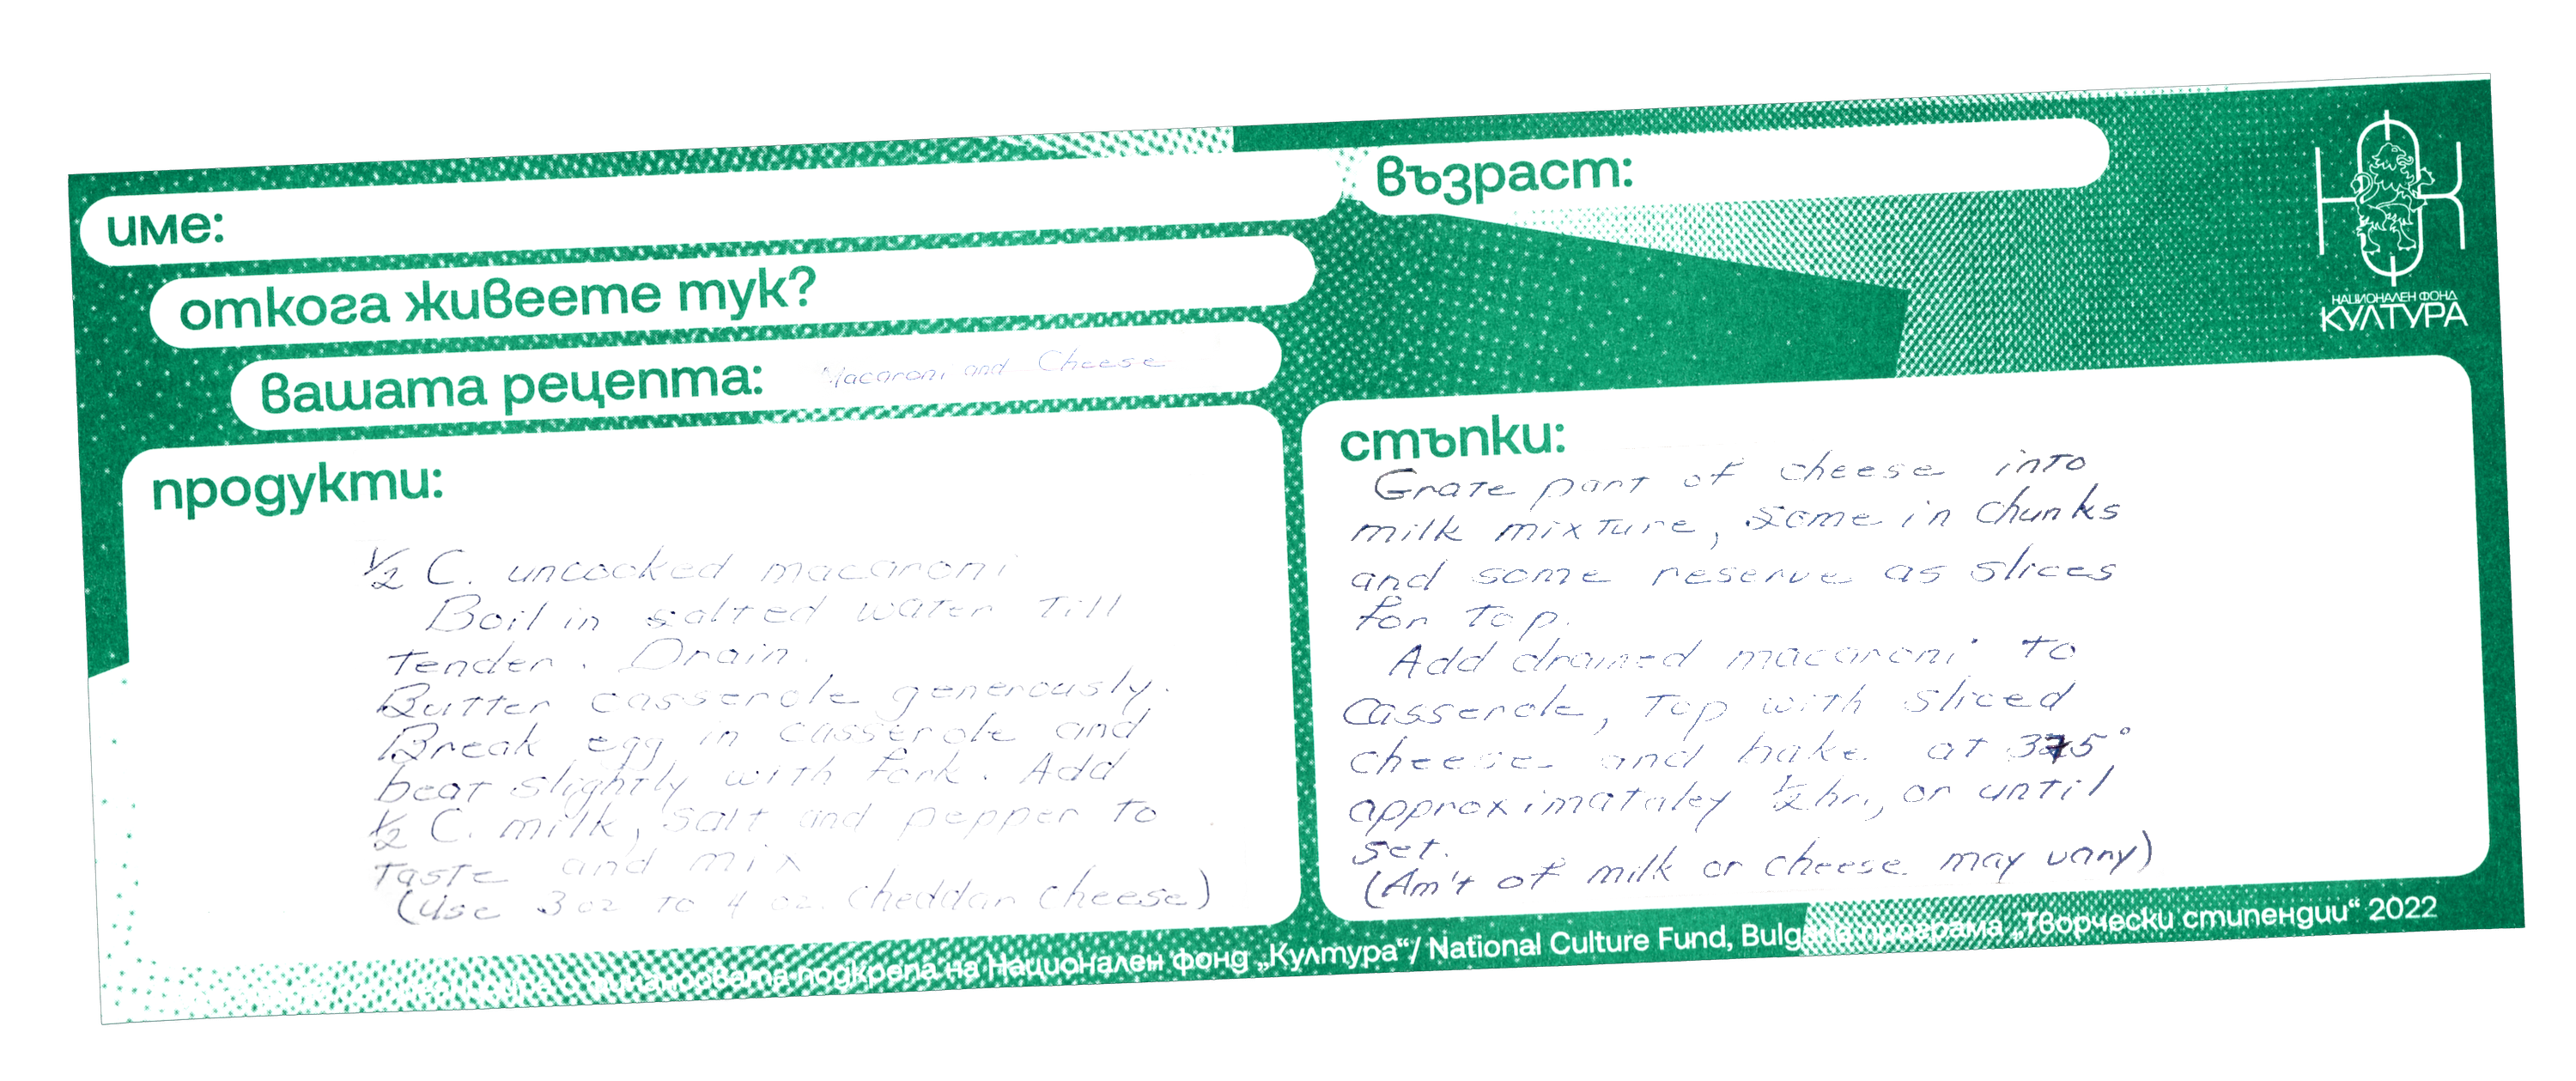 име:
възраст:
откога живеете тук?
вашата рецепта: Macaroni and Cheese
НАЦИОНАЛЕН ФОНД
КУЛТУРА
продукти:
1/2 C. uncooked macaroni
Boil in salted water till
tender. Drain.
Butter casserole generously.
Break egg in casserole and
beat slightly with fork. Add
1/2 C. milk, salt and pepper to
taste and mix
(Use 3 oz to 4 oz. cheddar cheese)
стъпки:
Grate part of cheese into
milk mixture, some in chunks
and some reserve as slices
for top.
Add drained macaroni to
casserole, top with sliced
cheese and bake at 375°
approximataley 1/2 hr., or until
set.
(Am't of milk or cheese may vary)
финансовата подкрепа на Национален фонд „Култура“/ National Culture Fund, Bulgaria програма „Творчески стипендии“ 2022